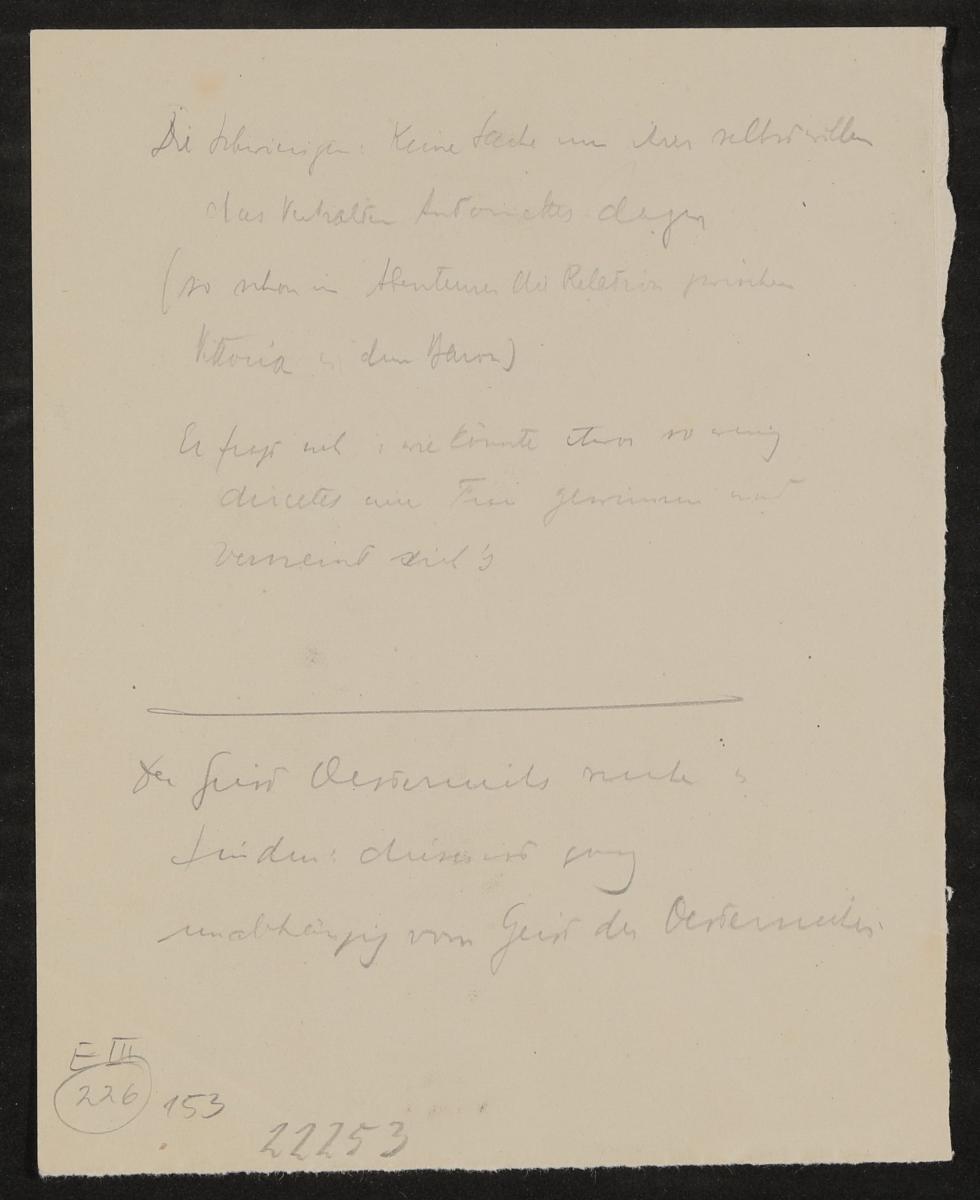 Die Schwierigen: Keine Sache um ihrer selbst willen
das Verhalten Antoinettes dagegen
(so schon im Abenteurer die Relation zwischen
Vittoria u dem Baron)
Er fragt sich: wie könnte etwas so wenig
directes eine Frau gewinnen und
verneint sich's
Der Geist Oesterreichs suche
finden: dieser ist ganz
unabhängig vom Geist der Oesterreicher.
E III
226 153
22253